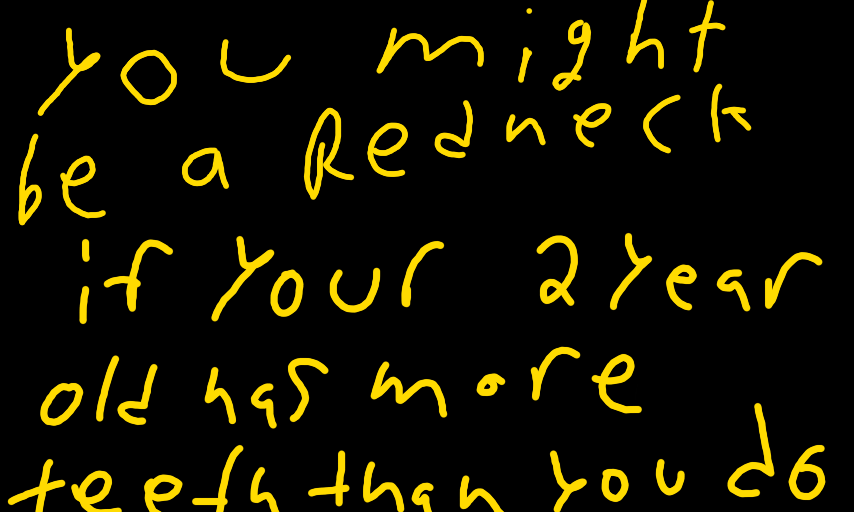 you might
be a Redneck
if your 2 year
old has more
teeth than you do